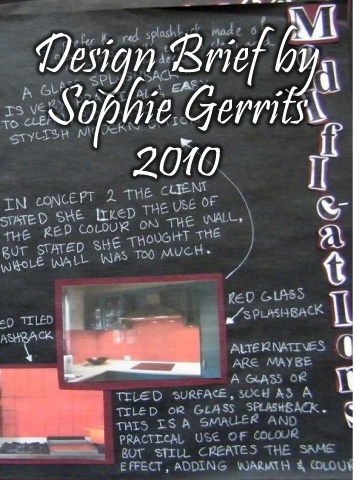 Design Brief by
Sophie Gerrits
2010
Modifications
prefer the red splashback made of
A GLASS SPLASHBACK
IS VERY
EASY
TO CLEAN
STYLISH MODERN
IN CONCEPT 2 THE CLIENT
STATED SHE LIKED THE USE OF
THE RED COLOUR ON THE WALL,
BUT STATED SHE THOUGHT THE
WHOLE WALL WAS TOO MUCH.
RED GLASS
SPLASHBACK
ED TILED
ASHBACK
ALTERNATIVES
ARE MAYBE
A GLASS OR
TILED SURFACE, SUCH AS A
TILED OR GLASS SPLASHBACK.
THIS IS A SMALLER AND
PRACTICAL USE OF COLOUR
BUT STILL CREATES THE SAME
EFFECT, ADDING WARMTH & COLOUR